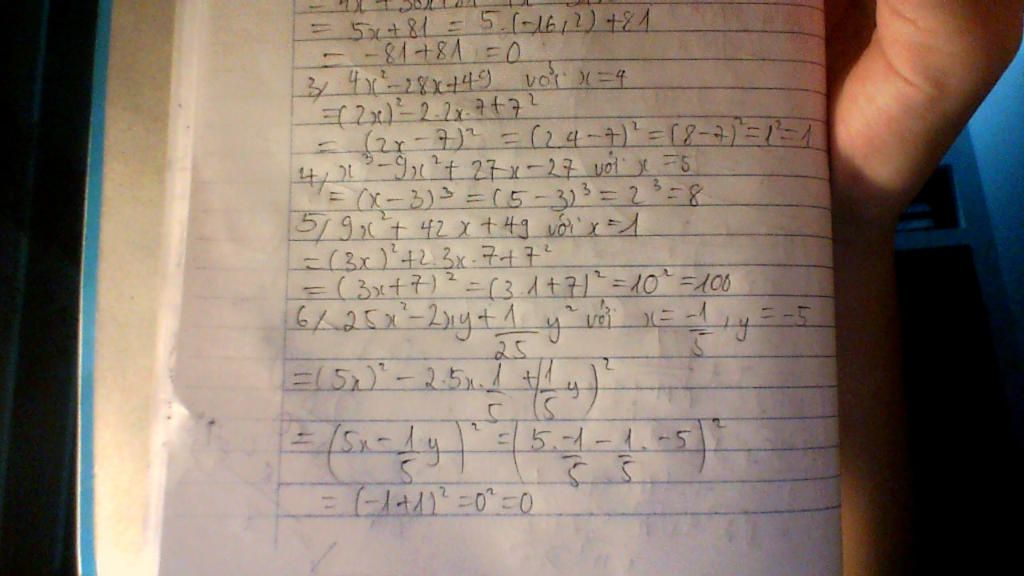 = 5x+81 = 5.(-16,2)+81
= -81+81 = 0
3/ 4x²-28x+49 với x=4
=(2x)²-2.2x.7+7²
= (2x-7)² =(2.4-7)²=(8-7)²=1²=1
4/ x³-9x²+27x-27 với x=5
=(x-3)³=(5-3)³=2³=8
5/ 9x²+42x+49 với x=1
=(3x)²+2.3x.7+7²
=(3x+7)²=(3.1+7)²=10²=100
6/ 25x²-2xy+1/25 y² với x=-1/5, y=-5
=(5x)²-2.5x.1/5+(1/5 y)²
=(5x-1/5.y)²=(5.-1/5-1/5.-5)²
=(-1+1)²=0²=0